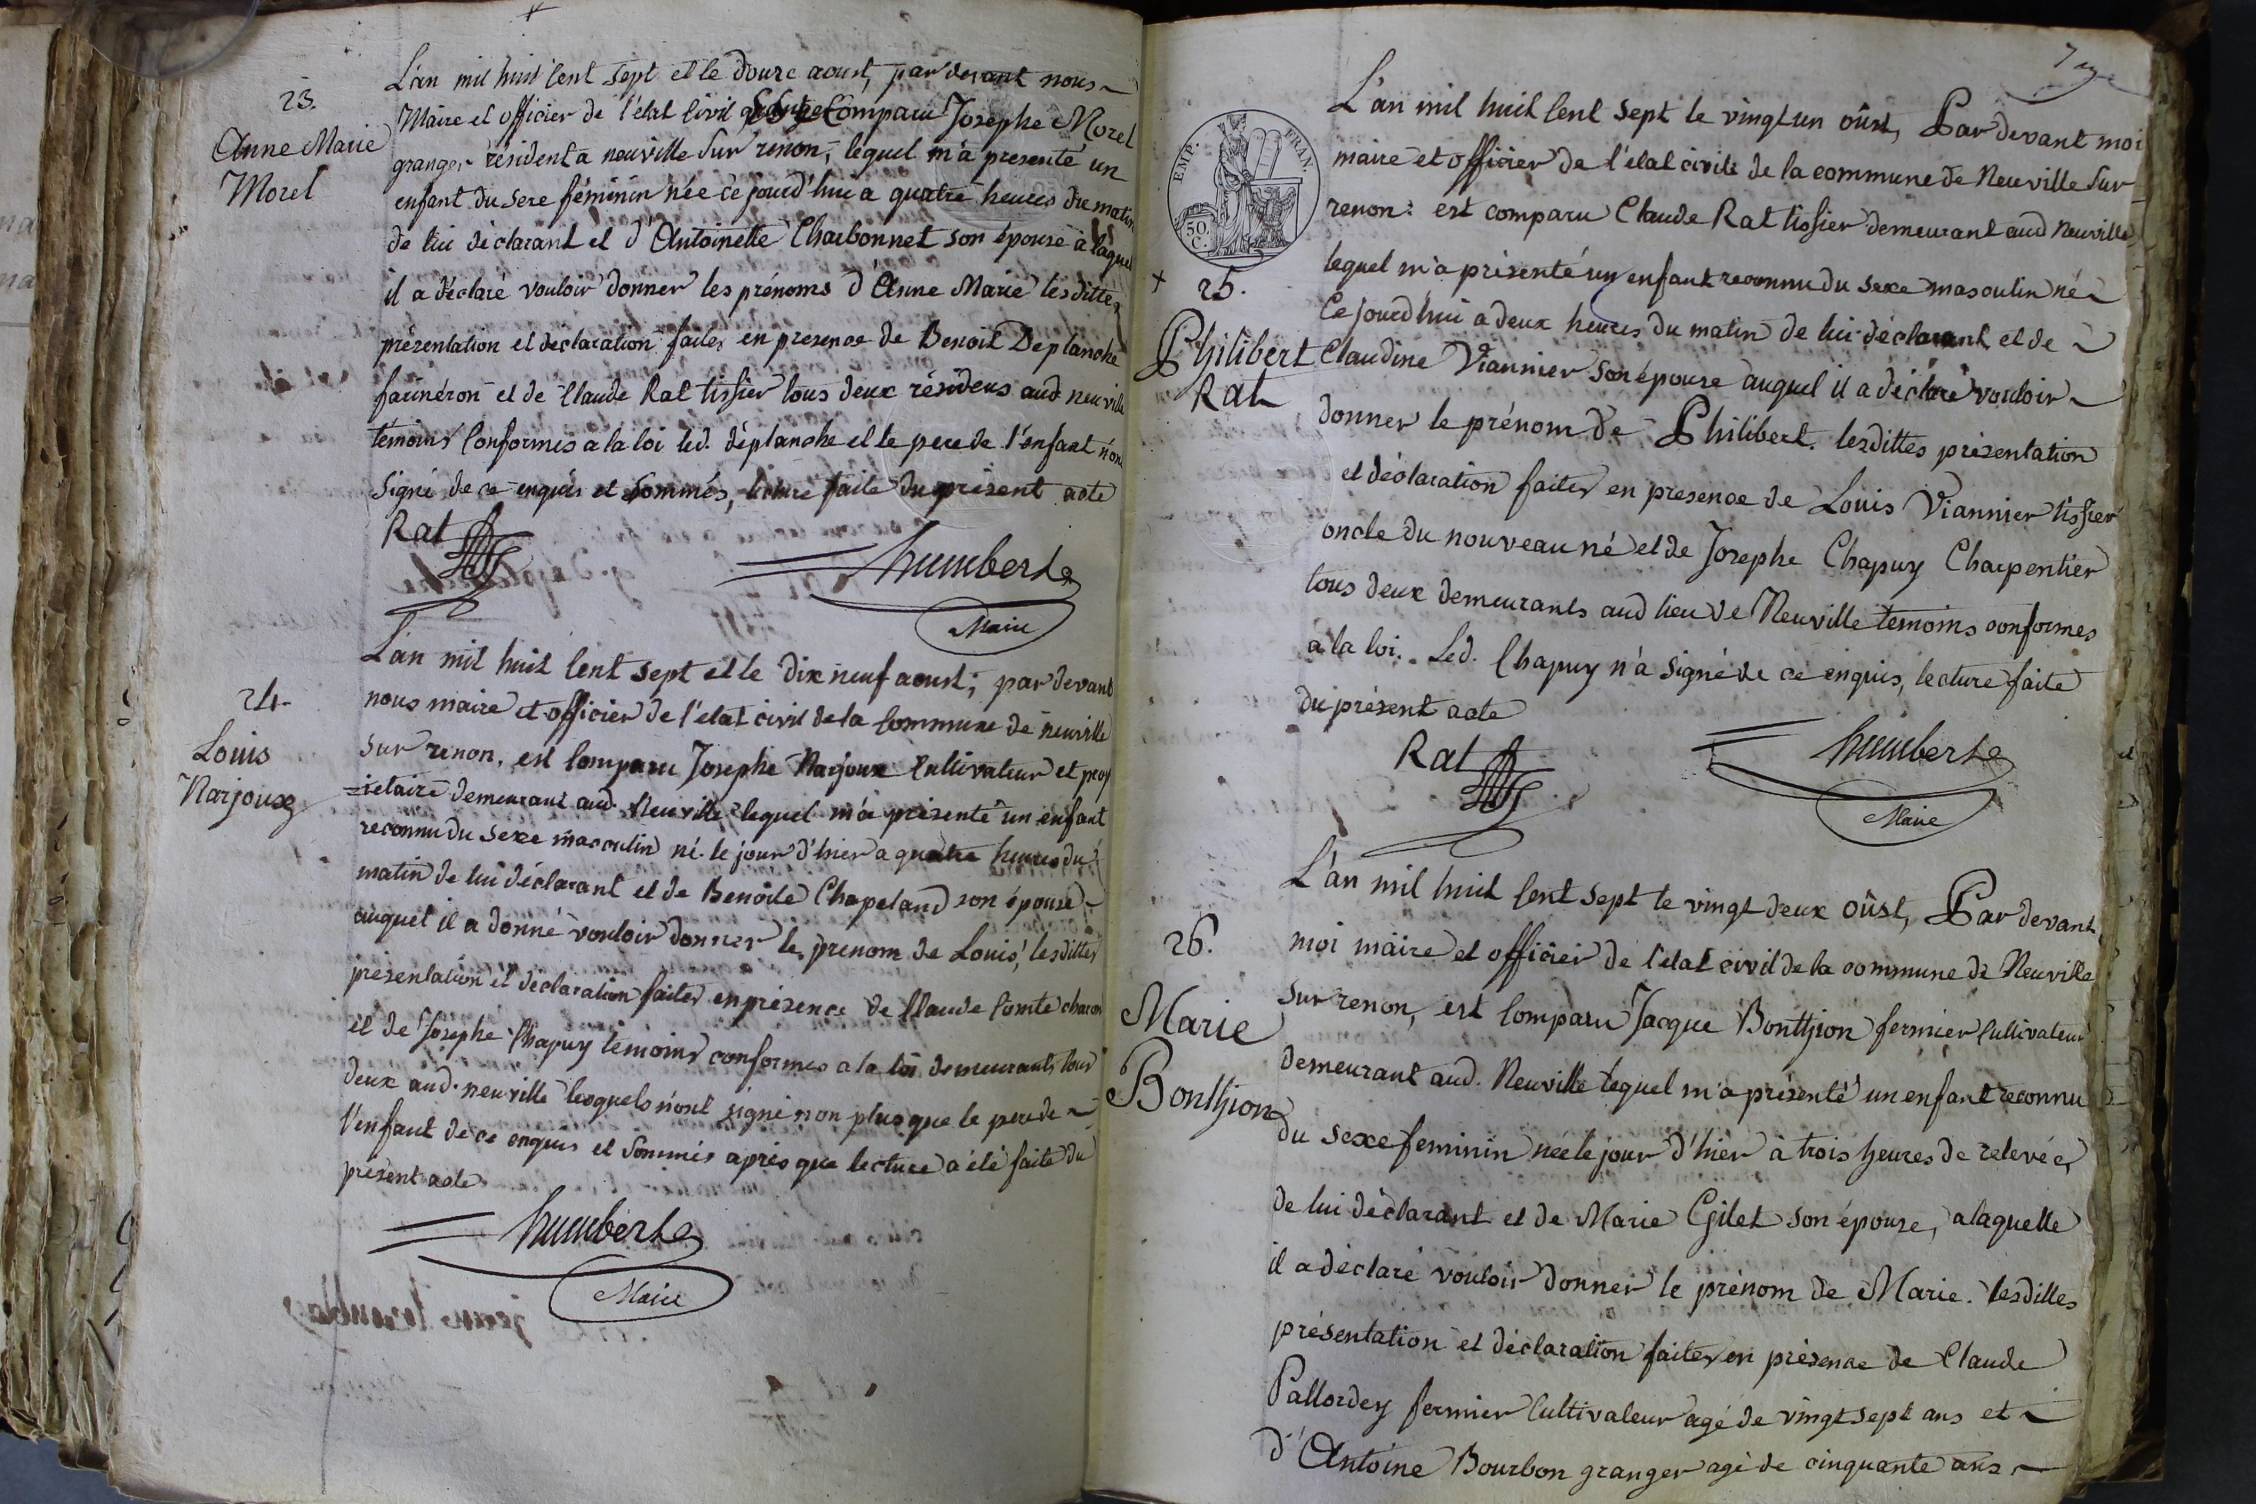 23.
Anne Marie
Morel
L'an mil huit Cent sept et le douze aoust, par devant nous
Maire et officier de l'état Civil Comparu Josephe Morel
granger résident a neuville sur renon, lequel m'a presenté un
enfant du sexe féminin née ce jourd'hui a quatre heures du matin
de lui déclarant et d'Antoinette Charbonnet son épouse à laquel
il a déclaré vouloir donner les prénoms d'Anne Marie lesdittes
présentation et declaration faites en presence de Benoit Deplanche
et de Claude Rat tissier tous deux résidens aud neuville
témoins Conformes a la loi led. déplanche et le pere de l'enfant n'on
signé de ce enquis et sommés, lecture faite du présent acte
Rat
humbert
Maire
24.
Louis
Narjoux
L'an mil huit Cent sept et le dix neuf aoust; par devant
nous maire et officier de l'etat civil de la Commune de neuville
sur renon, est Comparu Josephe Narjoux Cultivateur et prop
=ietaire demeurant aud. Neuville lequel m'a présenté un enfant
reconnu du sexe masculin né le jour d'hier a quatre heures du
matin de lui déclarant et de Benoite Chapeland son épouse
auquel il a donné vouloir donner le prenom de Louis, lesdittes
présentation et déclaration faites en présence de Claude Comte charon
et de Josephe Chapuy témoins conformes a la loi demeurants tous
deux aud. neuville lesquels n'ont signé non plus que le pere de
l'enfant de ce enquis et sommés après que lecture a été faite du
présent acte
humbert
Maire
7
EMP. FRAN.
50.
C.
25.
Philibert
Rat
L'an mil huit Cent sept le vingt un oûst, Par devant moi
maire et officier de l'état civile de la commune de Neuville sur
renon: est comparu Claude Rat tissier demeurant aud Neuville,
lequel m'a présenté un enfant reconnu du sexe masculin né
Ce jourd'hui a deux heures du matin de lui déclarant et de
Claudine Viannier son épouse auquel il a déclaré vouloir
donner le prénom de Philibert. lesdittes présentation
et déclaration faites en presence de Louis Viannier tissier
oncle du nouveau né et de Josephe Chapuy Charpentier
tous deux demeurants aud lieu de Neuville temoins conformes
a la loi. Led. Chapuy n'a signé de ce enquis, lecture faite
du présent acte
Rat
humbert
Maire
26.
Marie
Bonthion
L'an mil huit Cent sept le vingt deux oûst, Par devant
moi maire et officier de l'etat civil de la commune de Neuville
sur renon, est Comparu Jacque Bonthion fermier Cultivateur
demeurant aud. Neuville lequel m'a présenté un enfant reconnu
du sexe feminin née le jour d'hier à trois heures de relevée,
de lui déclarant et de Marie Gilet son épouse, a laquelle
il a déclaré vouloir donner le prénom de Marie. lesdittes
présentation et déclaration faites en présence de Claude
Pallordey fermier Cultivateur agé de vingt sept ans et
d'Antoine Bourbon granger agé de cinquante ans